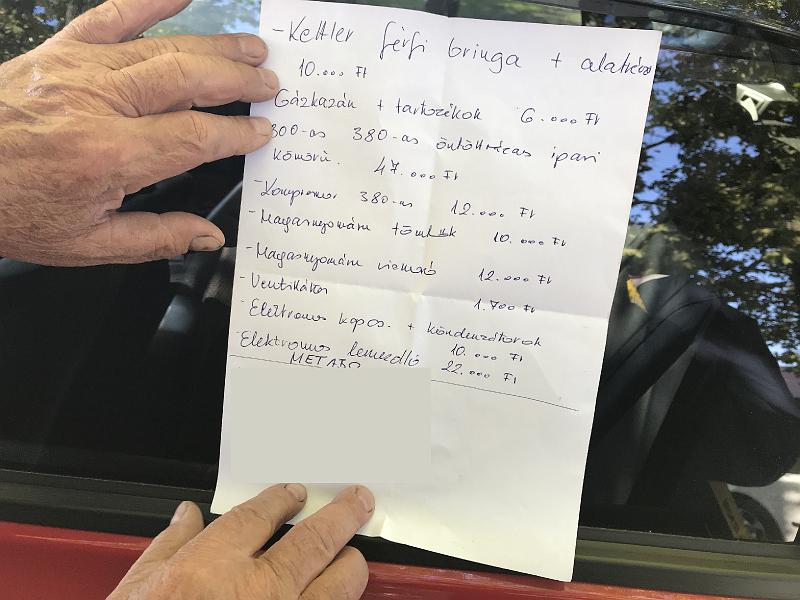 - Kettler férfi bringa +
10.000 Ft
Gázkazán + tartozékok 6.000 Ft
300-as 380-as öntöttvasas ipari
47.000 Ft
- Kompresszor 380-as 12.000 Ft
- Magasnyomású tömlők 10.000 Ft
- Magasnyomású 12.000 Ft
- Ventilátor 1.700 Ft
- Elektromos kapcs. + kondenzátorok
10.000 Ft
- Elektromos 22.000 Ft
METABO